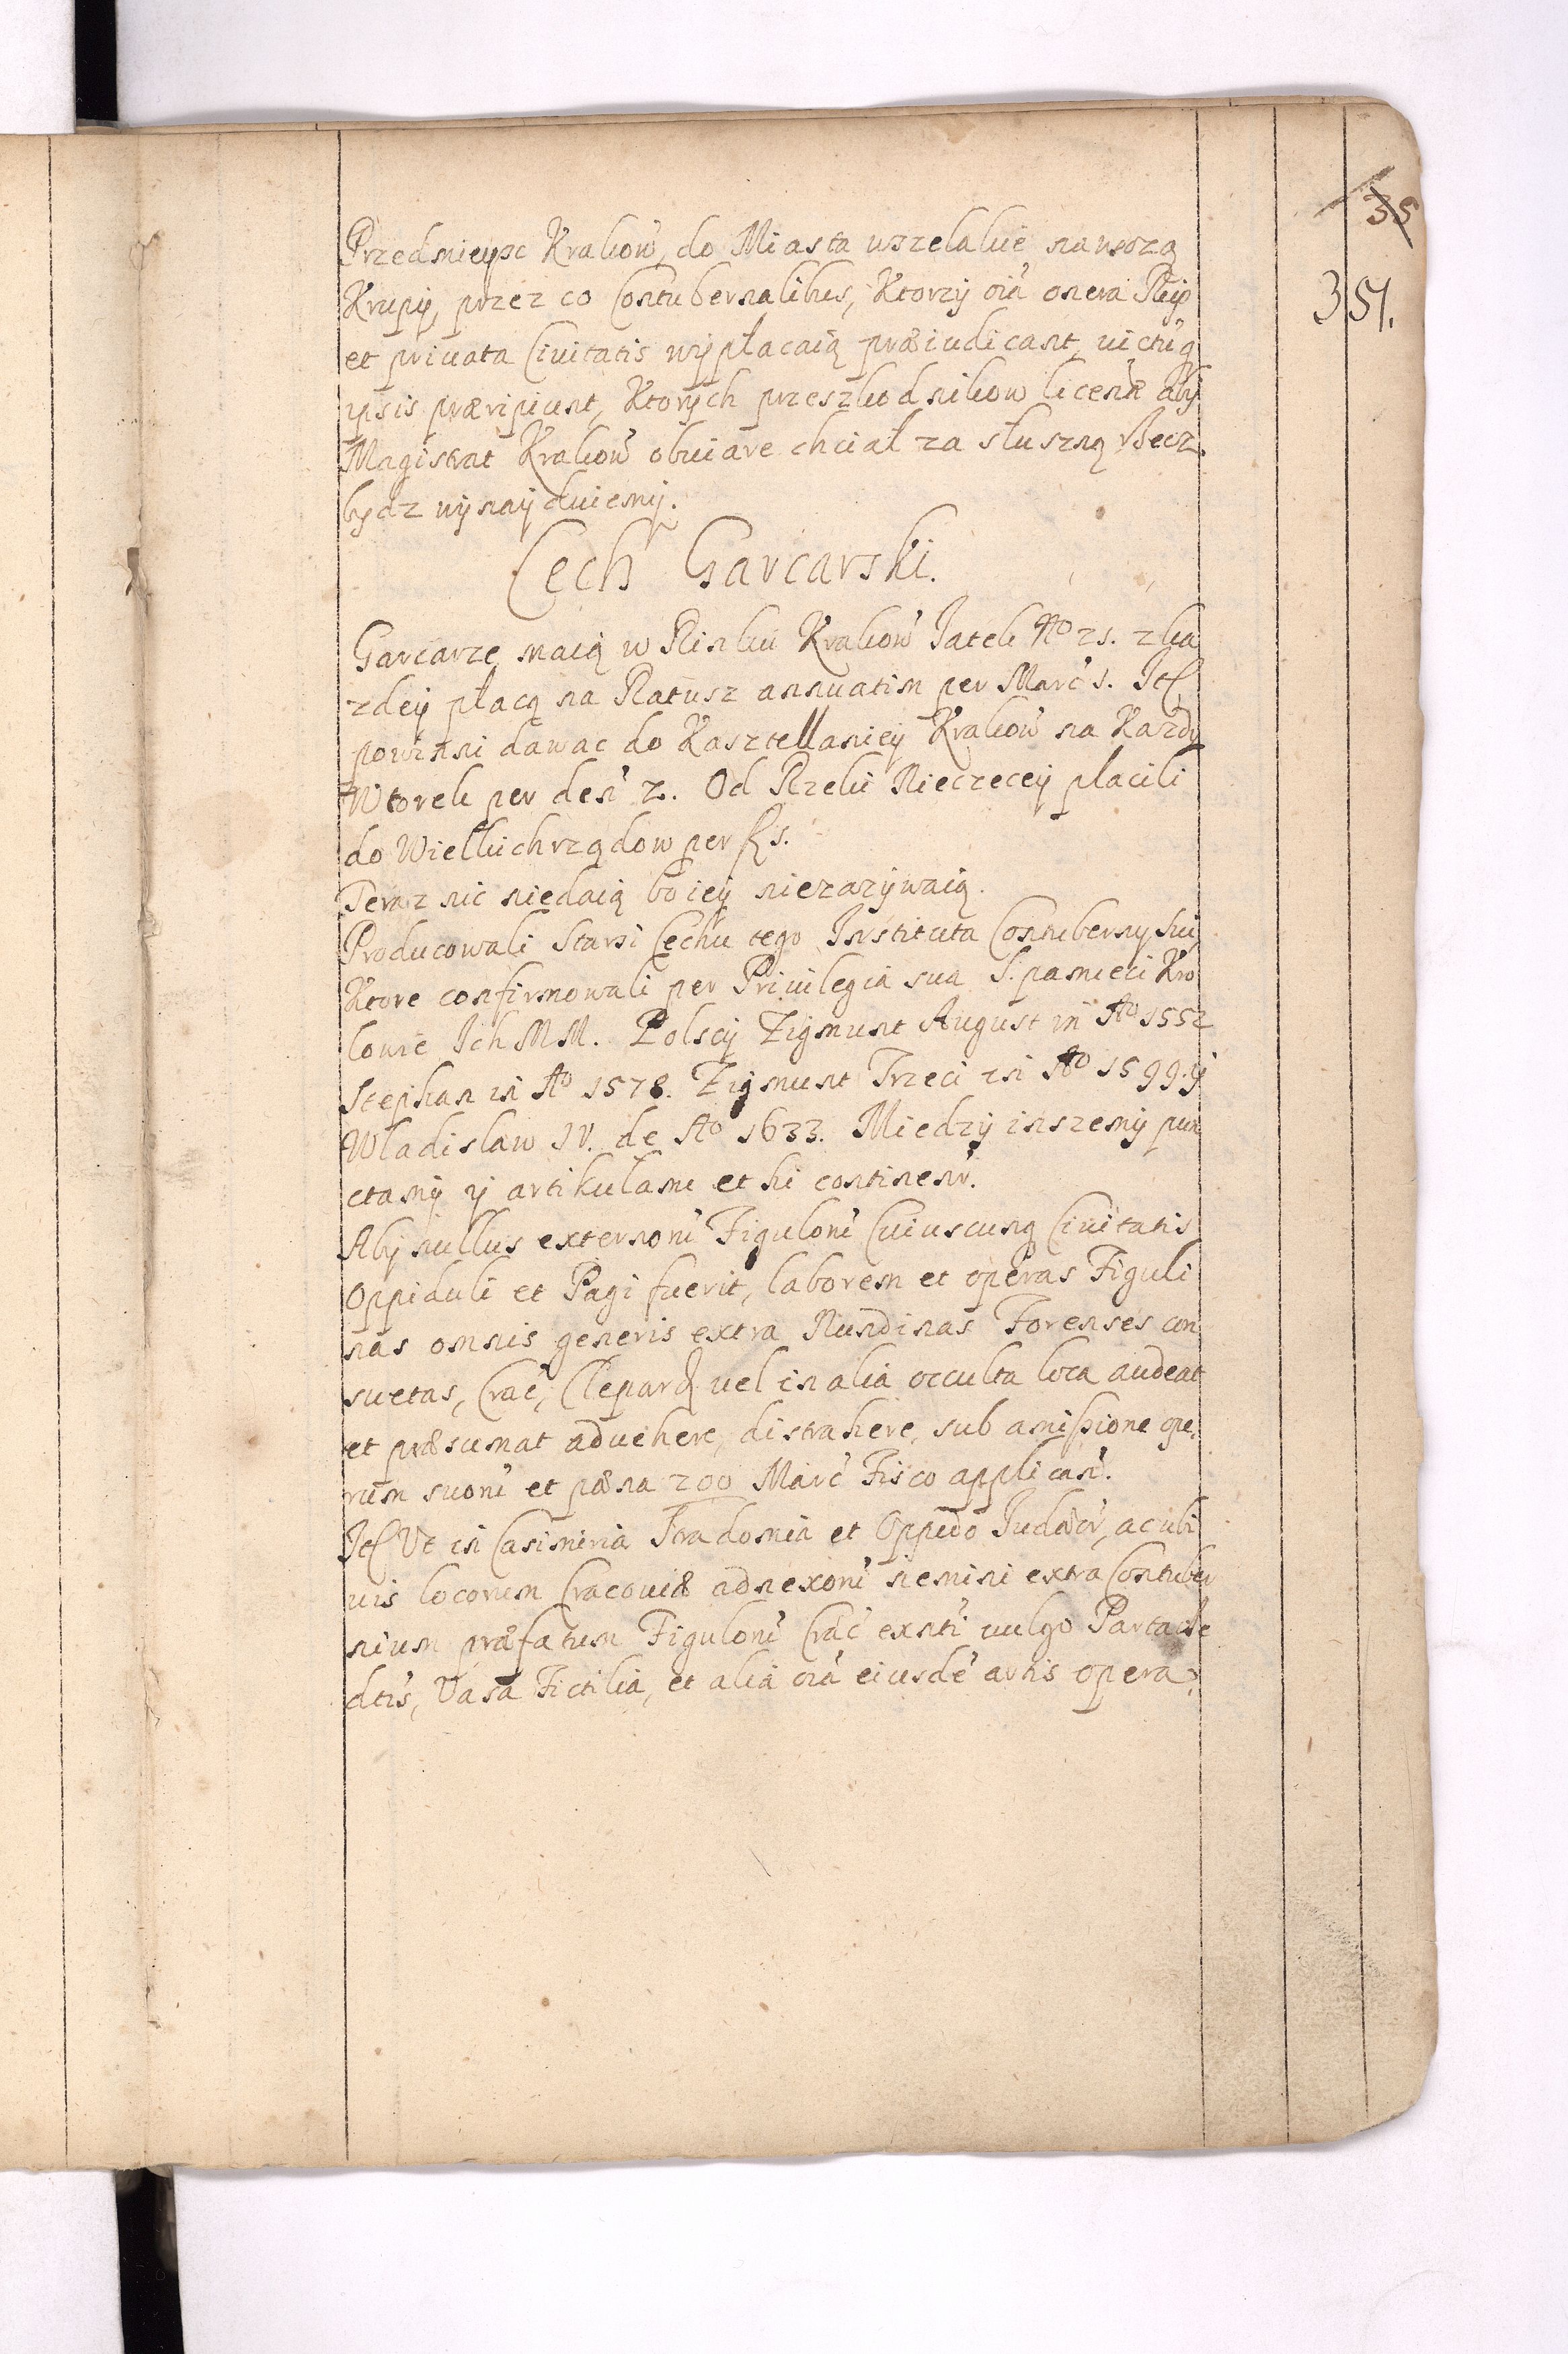 35
351.
Przedmieysc Krakow̃, do Miasta wszelakie nawożą
Krupÿ, przez co Contubernalibus, Ktorzÿ oĩa onera Reip
et priuata Ciuitatis wÿpłacaią præiudicant, uictũq
ypsis præripiunt, Ktorÿch przeszkodnikow licenõ abÿ
Magistrat Krakow̃ obuiare chciał za słuszną Recz
bydz wÿnaÿduiemÿ.
Cech Garcarski.
Garcarze maią w Rinku Krakow̃ Jatek No 21. z ka
zdeÿ płacą na Ratusz annuatim per Marc̃ 1. Itȩ
powinni dawac do Kasztellanieÿ Krakow̃ na Kazdy
Wtorek per deñ 2. Od Rzeki Rieczeceÿ placili
do Wielkichrządow per f 1.
Teraz nic niedaią bo ieÿ niezazÿwaią.
Producowali Starsi Cechu tego Instituta Contuberny sui,
Ktore confirmowali per Priuilegia sua S. pamieci Kro
lowie Ich MM. Polscÿ Zigmunt August in Ao 1552
Stephan in Ao 1578. Zigmunt Trzeci in Ao 1599. ÿ
Wladislaw IV. de Ao 1633. Miedzÿ inszemÿ pun
ctamÿ ÿ artikulami et hi continenr̃.
Abÿ nullus externom̃ Figulom̃ Cuiuscunq Ciuitatis
Oppiduli et Pagi fuerit, laborem et operas Figuli
nas omnis generis extra Nundinas Forenses con
suetas, Crac̃, Clepard̨ uel in alia occulta loca audeat
et præsumat aduehere, distrahere, sub amißione ope,
rum suom̃ et pæna 200 Marc̃ Fisco applicañ.
Itȩ Ut in Casimiria Stradomia et Oppido Judæor̃, ac ubi
uis locorum Cracouiæ adnexom̃ nemini extra Contuber
nium præfatum Figulom̃ Crac̃ exñti uulgo Partacze
dtis̃, Vasa Fictilia, et alia oĩa eiusdẽ artis opera